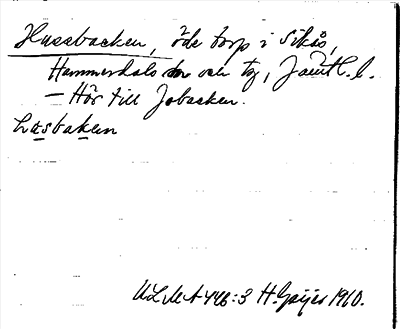 Hussbacken, öde torp i Sikås,
Hammerdals sn och tg, Jämtl. l.
— Hör till Jobacken.
husbaken
ULMA 446:3 H. Geijer 1910.